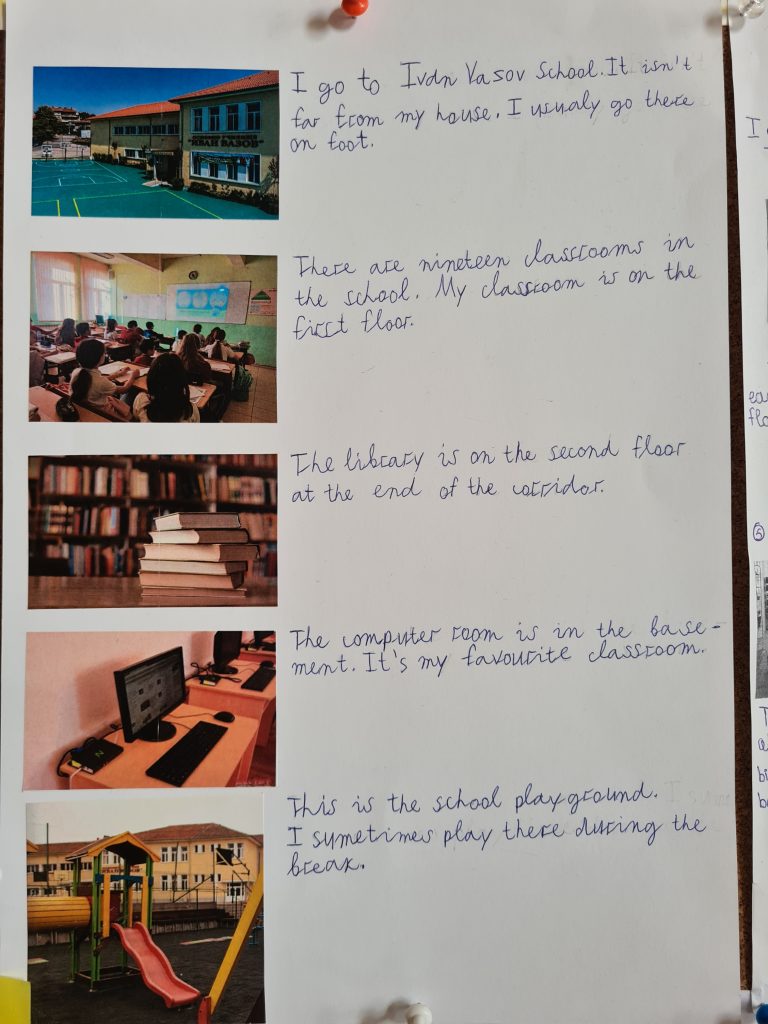 I go to Ivan Vasov School. It isn't
far from my house. I usualy go there
on foot.
"ИВАН ВАЗОВ"
There are nineteen classrooms in
the school. My classroom is on the
first floor.
The library is on the second floor
at the end of the corridor.
The computer room is in the base-
ment. It's my favourite classroom.
This is the school playground.
I sumetimes play there during the
break.